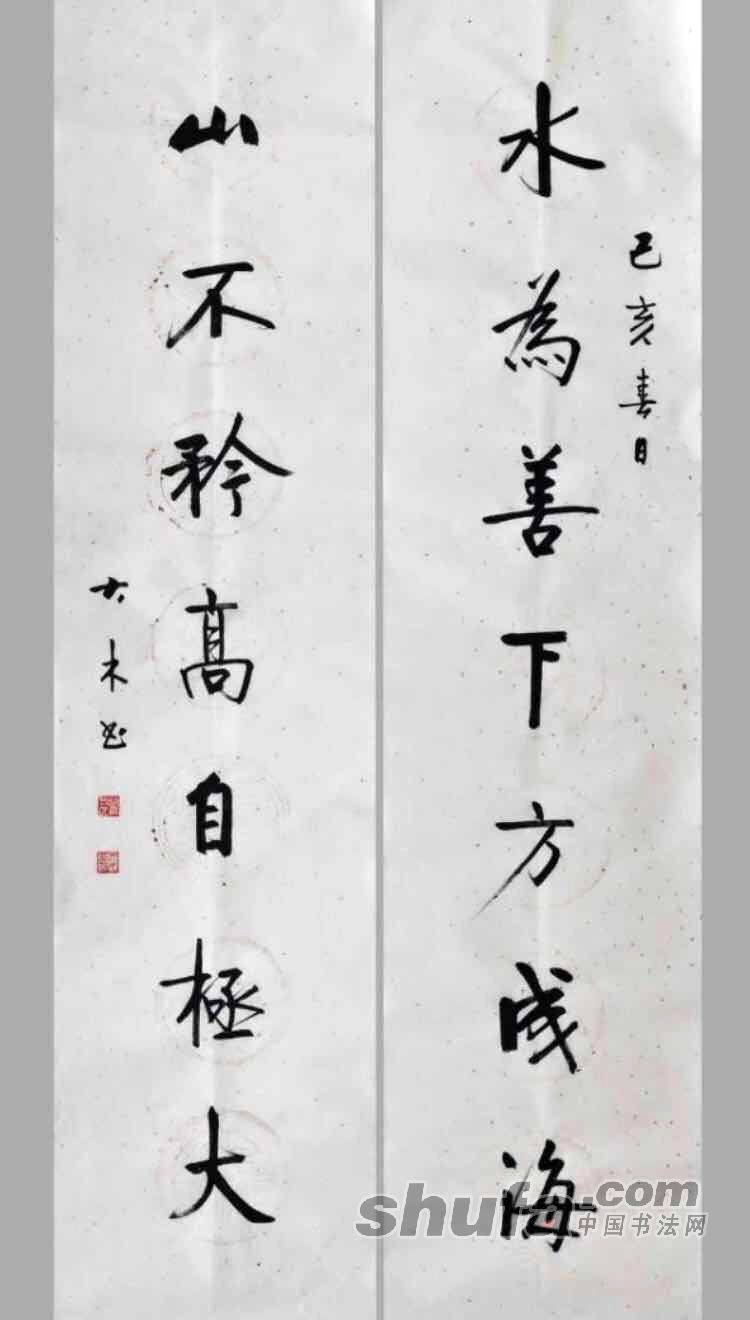 己亥春日
水為善下方成海
山不矜高自極大
大木书
shufa.com
中国书法网